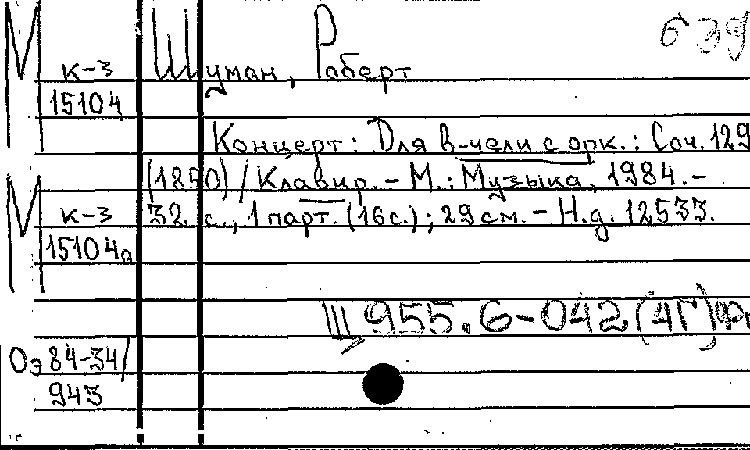 639
М Шуман, Роберт
к-3
15104
Концерт: Для в-чели с орк.: Соч. 129
(1850) / Клавир. – М.: Музыка, 1984. –
М к-3 32 с., 1 парт. (16 с.); 29 см. – Н.д. 12533.
15104а
Ш 955.6-042(4Г)
Оэ 84-34/
943